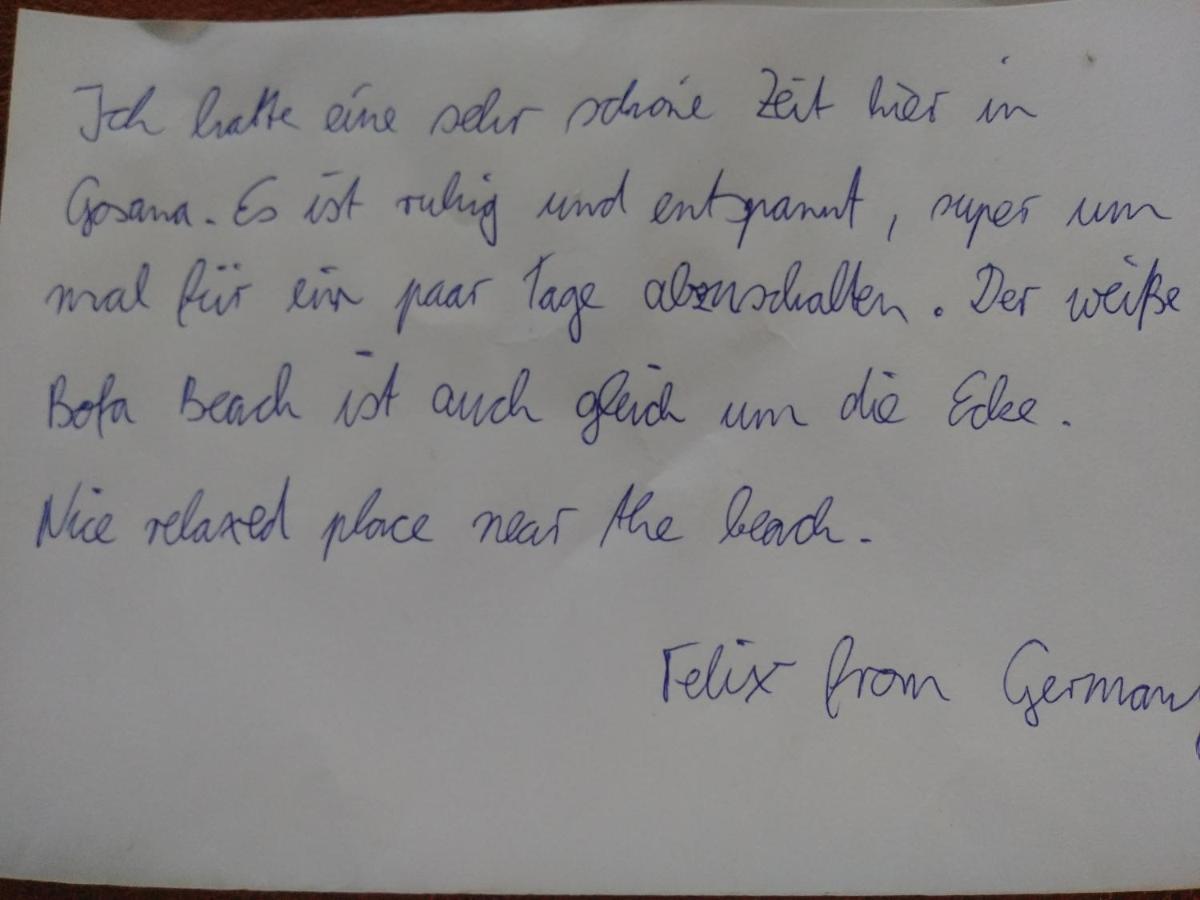 Ich hatte eine sehr schöne Zeit hier in
Gosana. Es ist ruhig und entspannt, super um
mal für ein paar Tage abzuschalten. Der weiße
Bofa Beach ist auch gleich um die Ecke.
Nice relaxed place near the beach.
Felix from Germany